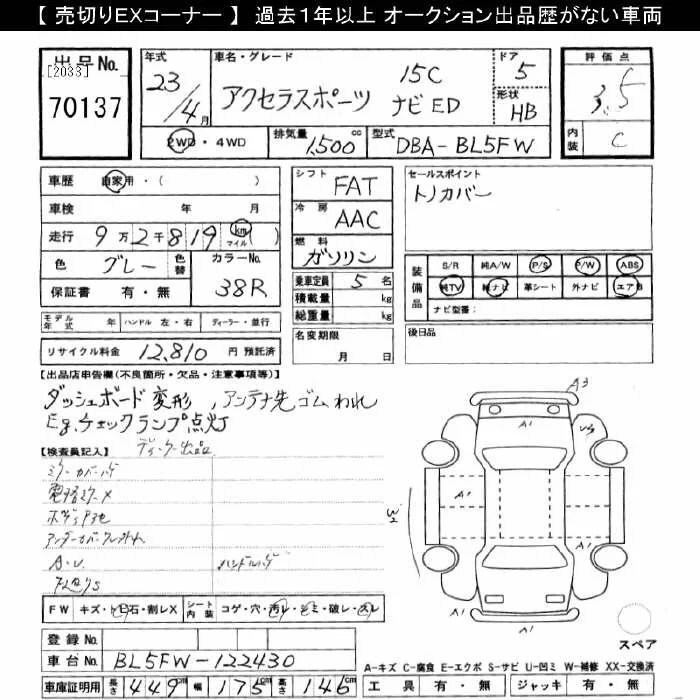 【 売切りEXコーナー 】 過去1年以上 オークション出品歴がない車両
出品No.
[2033]
70137
年式 23/4月
車名・グレード アクセラスポーツ 15C ナビED
ドア 5
形状 HB
評価点 3.5
内装 C
2WD・4WD
排気量 1,500 cc
型式 DBA-BL5FW
車歴 自家用・( )
車検 年 月
走行 9万2千819 km マイル ( )
色 グレー 色替 カラーNo. 38R
保証書 有・無
モデル年式 年 ハンドル 左・右 ディーラー・並行
リサイクル料金 12,810 円 預託済
シフト FAT
冷房 AAC
燃料 ガソリン
乗車定員 5 名
積載量 kg
総重量 kg
名変期限 月 日
セールスポイント
トノカバー
装備品
S/R 純A/W P/S P/W ABS
純TV 純ナビ 革シート 外ナビ エアB
ナビ型番:
後日品
【出品店申告欄(不良箇所・欠品・注意事項等)】
ダッシュボード変形,アンテナ先ゴムわれ
Eg.チェックランプ点灯
【検査員記入】 ディーラー出品
A・U
ハンドルハゲ
A3
A1
U3
A1
W2
A1
A1
A1
FW キズ・ヒビ石・割レX シート内装 コゲ・穴・汚レ・シミ・破レ・スレ
登録No.
車台No. BL5FW-122430
車庫証明用 長さ 449cm 幅 175cm 高さ 146cm
スペア
A-キズ C-腐食 E-エクボ S-サビ U-凹ミ W-補修 XX-交換済
工具 有・無 ジャッキ 有・無